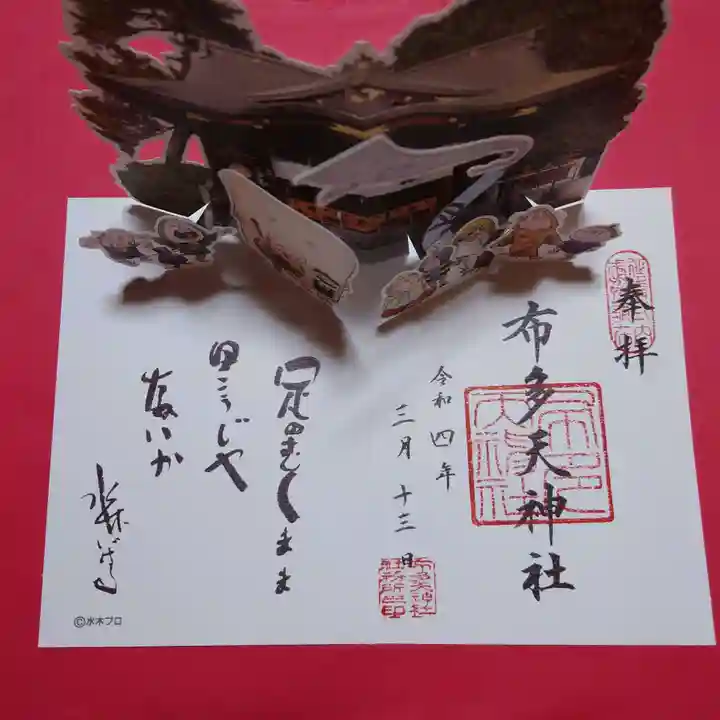 奉拝
布多天神社
令和四年
三月十三日
足のむくまま
田こうじや
ないか
水木しげる
©水木プロ